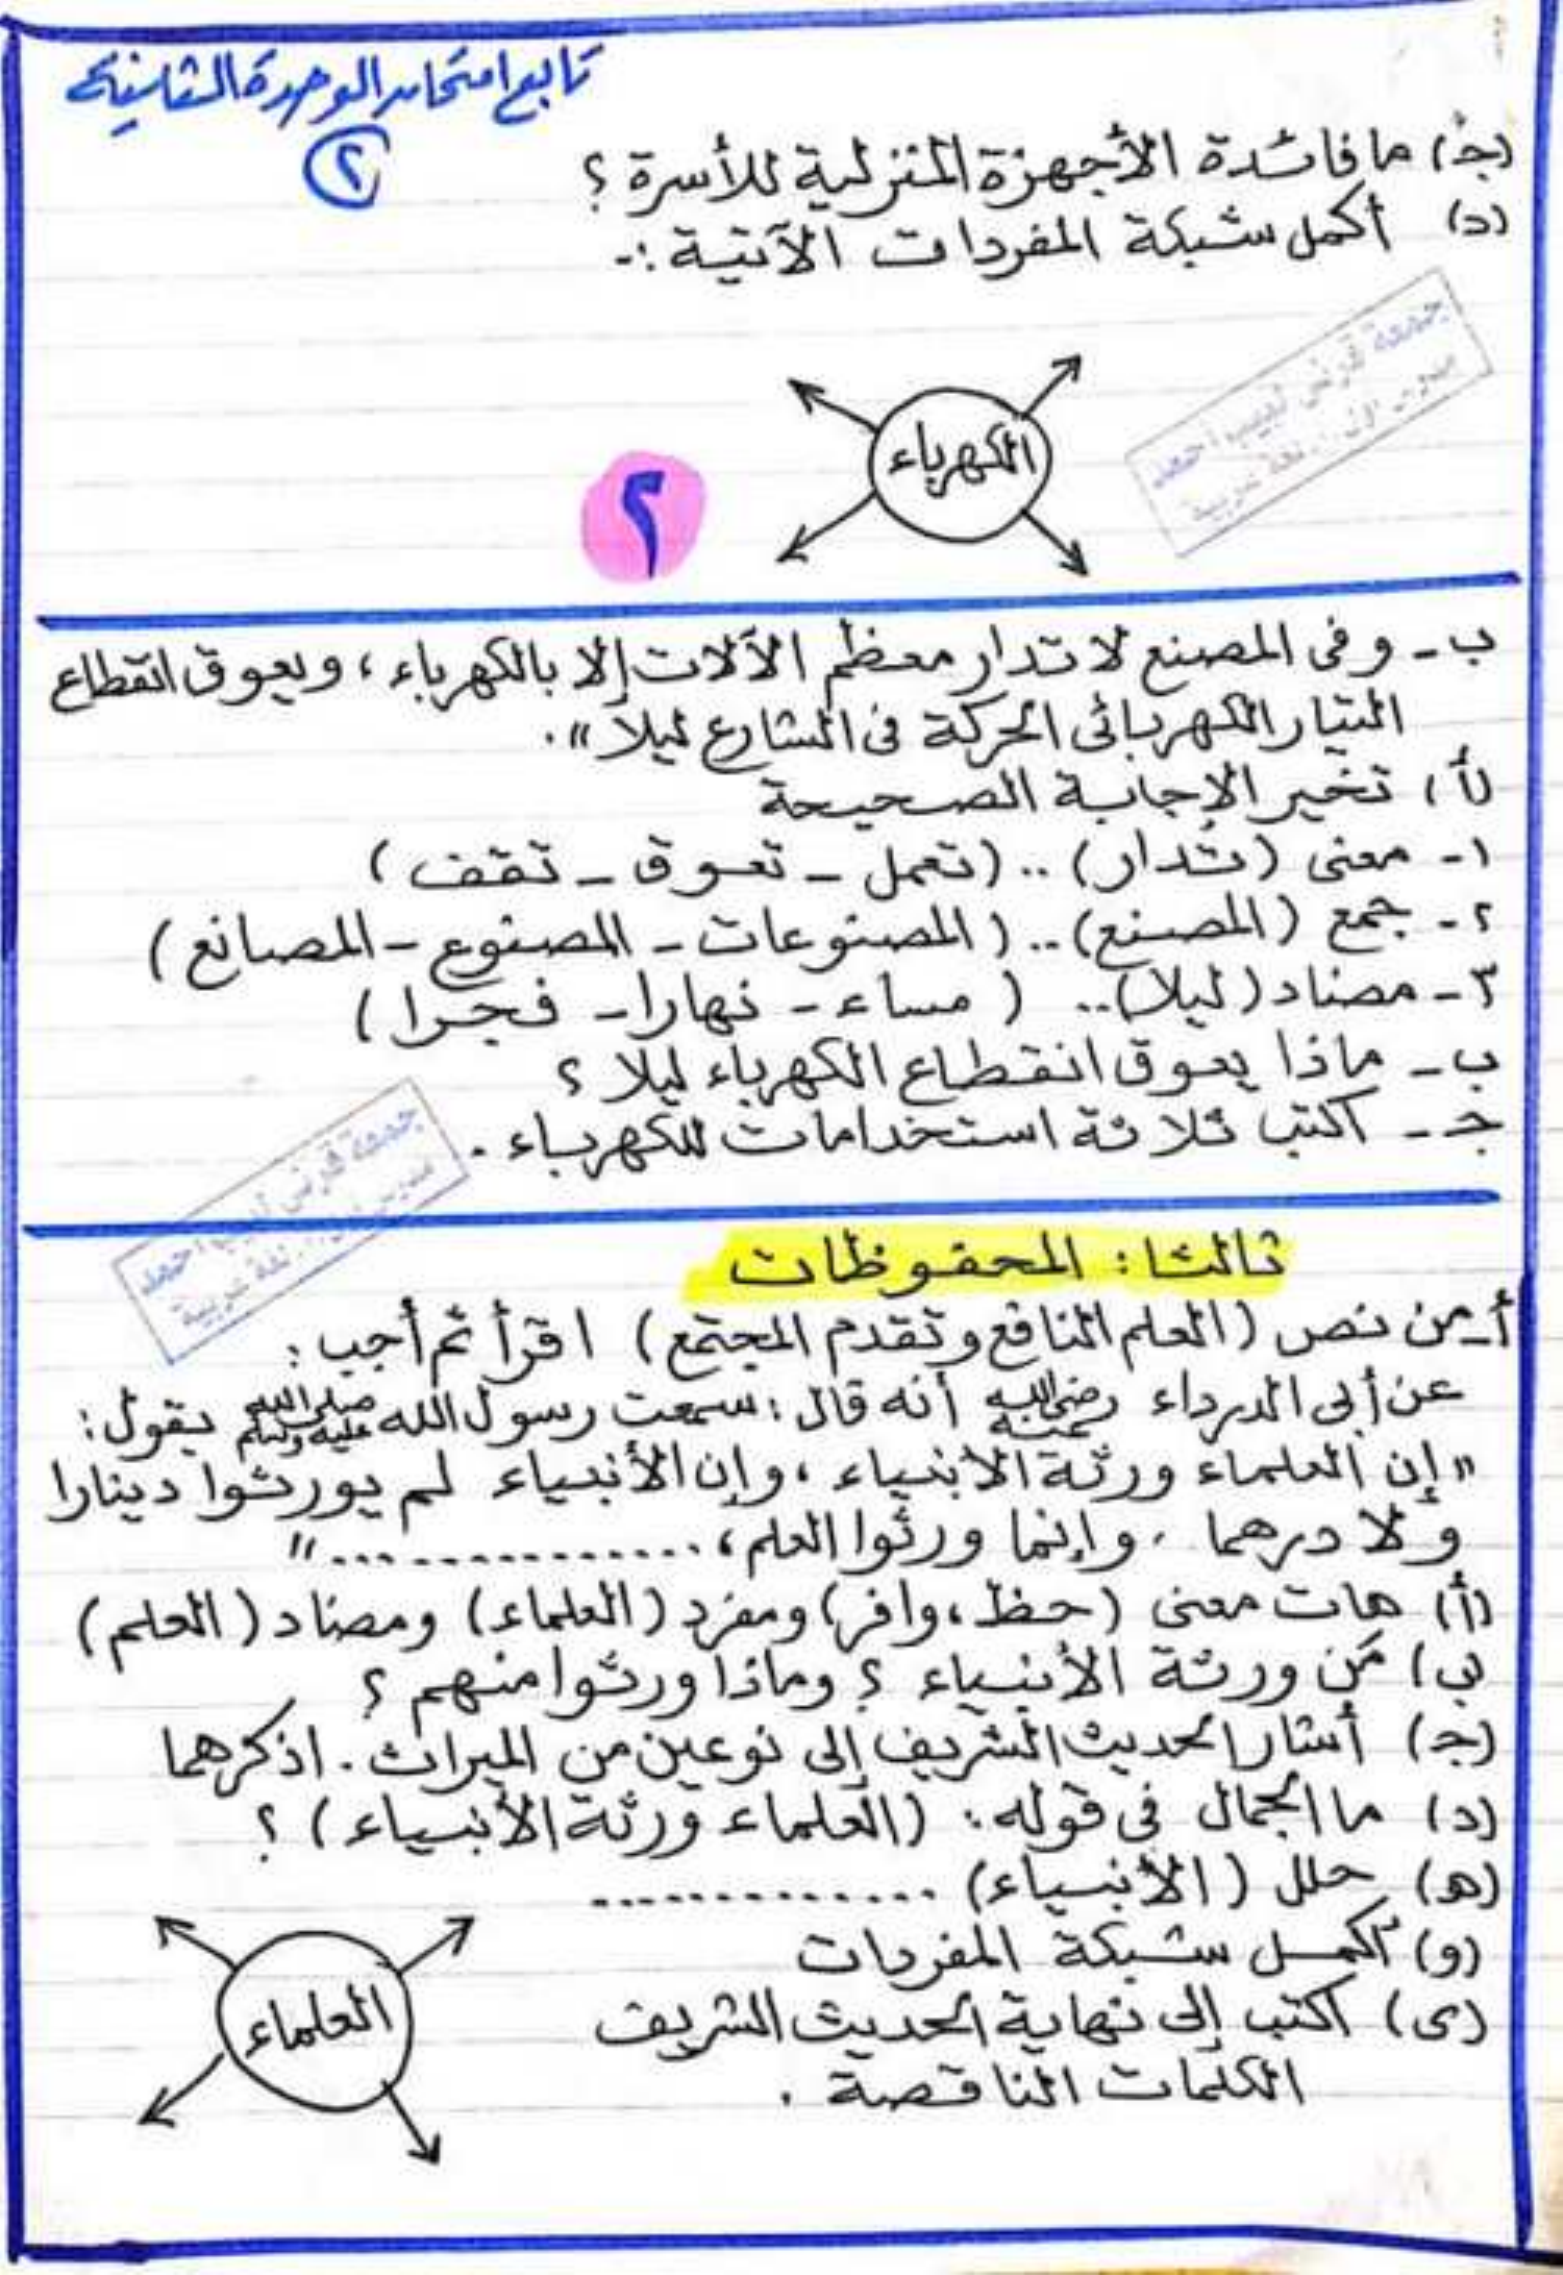 تابع امتحان الوحدة الثانية
٢
(جـ) ما فائدة الأجهزة المنزلية للأسرة ؟
(د) أكمل شبكة المفردات الآتية :-
الكهرباء
٢
ب - وفى المصنع لا تدار معظم الآلات إلا بالكهرباء ، ويعوق انقطاع
التيار الكهربائى الحركة فى الشارع ليلاً " .
(أ) تخير الإجابة الصحيحة
١ - معنى (تُدار) .. (تعمل - تعوق - تقف )
٢ - جمع (المصنع) .. ( المصنوعات - المصنوع - المصانع )
٣ - مضاد (ليلا) .. ( مساء - نهارا - فجرا )
ب - ماذا يعوق انقطاع الكهرباء ليلا ؟
جـ - اكتب ثلاثة استخدامات للكهرباء .
ثالثا : المحفوظات
أ - من نص (العلم النافع وتقدم المجتمع ) اقرأ ثم أجب :
عن أبى الدرداء رضى الله عنه أنه قال : سمعت رسول الله صلى الله عليه وسلم يقول :
" إن العلماء ورثة الأنبياء ، وإن الأنبياء لم يورثوا دينارا
ولا درهما ، وإنما ورثوا العلم ، .............. "
(أ) هات معنى (حظ ، وافر) ومفرد (العلماء) ومضاد (العلم)
ب) مَن ورثة الأنبياء ؟ وماذا ورثوا منهم ؟
(جـ) أشار الحديث الشريف إلى نوعين من الميراث . اذكرهما
(د) ما الجمال فى قوله : (العلماء ورثة الأنبياء ) ؟
(هـ) حلل (الأنبياء) .............
(و) أكمل شبكة المفردات
العلماء
(ى) اكتب إلى نهاية الحديث الشريف
الكلمات الناقصة .
جمعة قرنى لبيب احمد
جمعة قرنى لبيب احمد